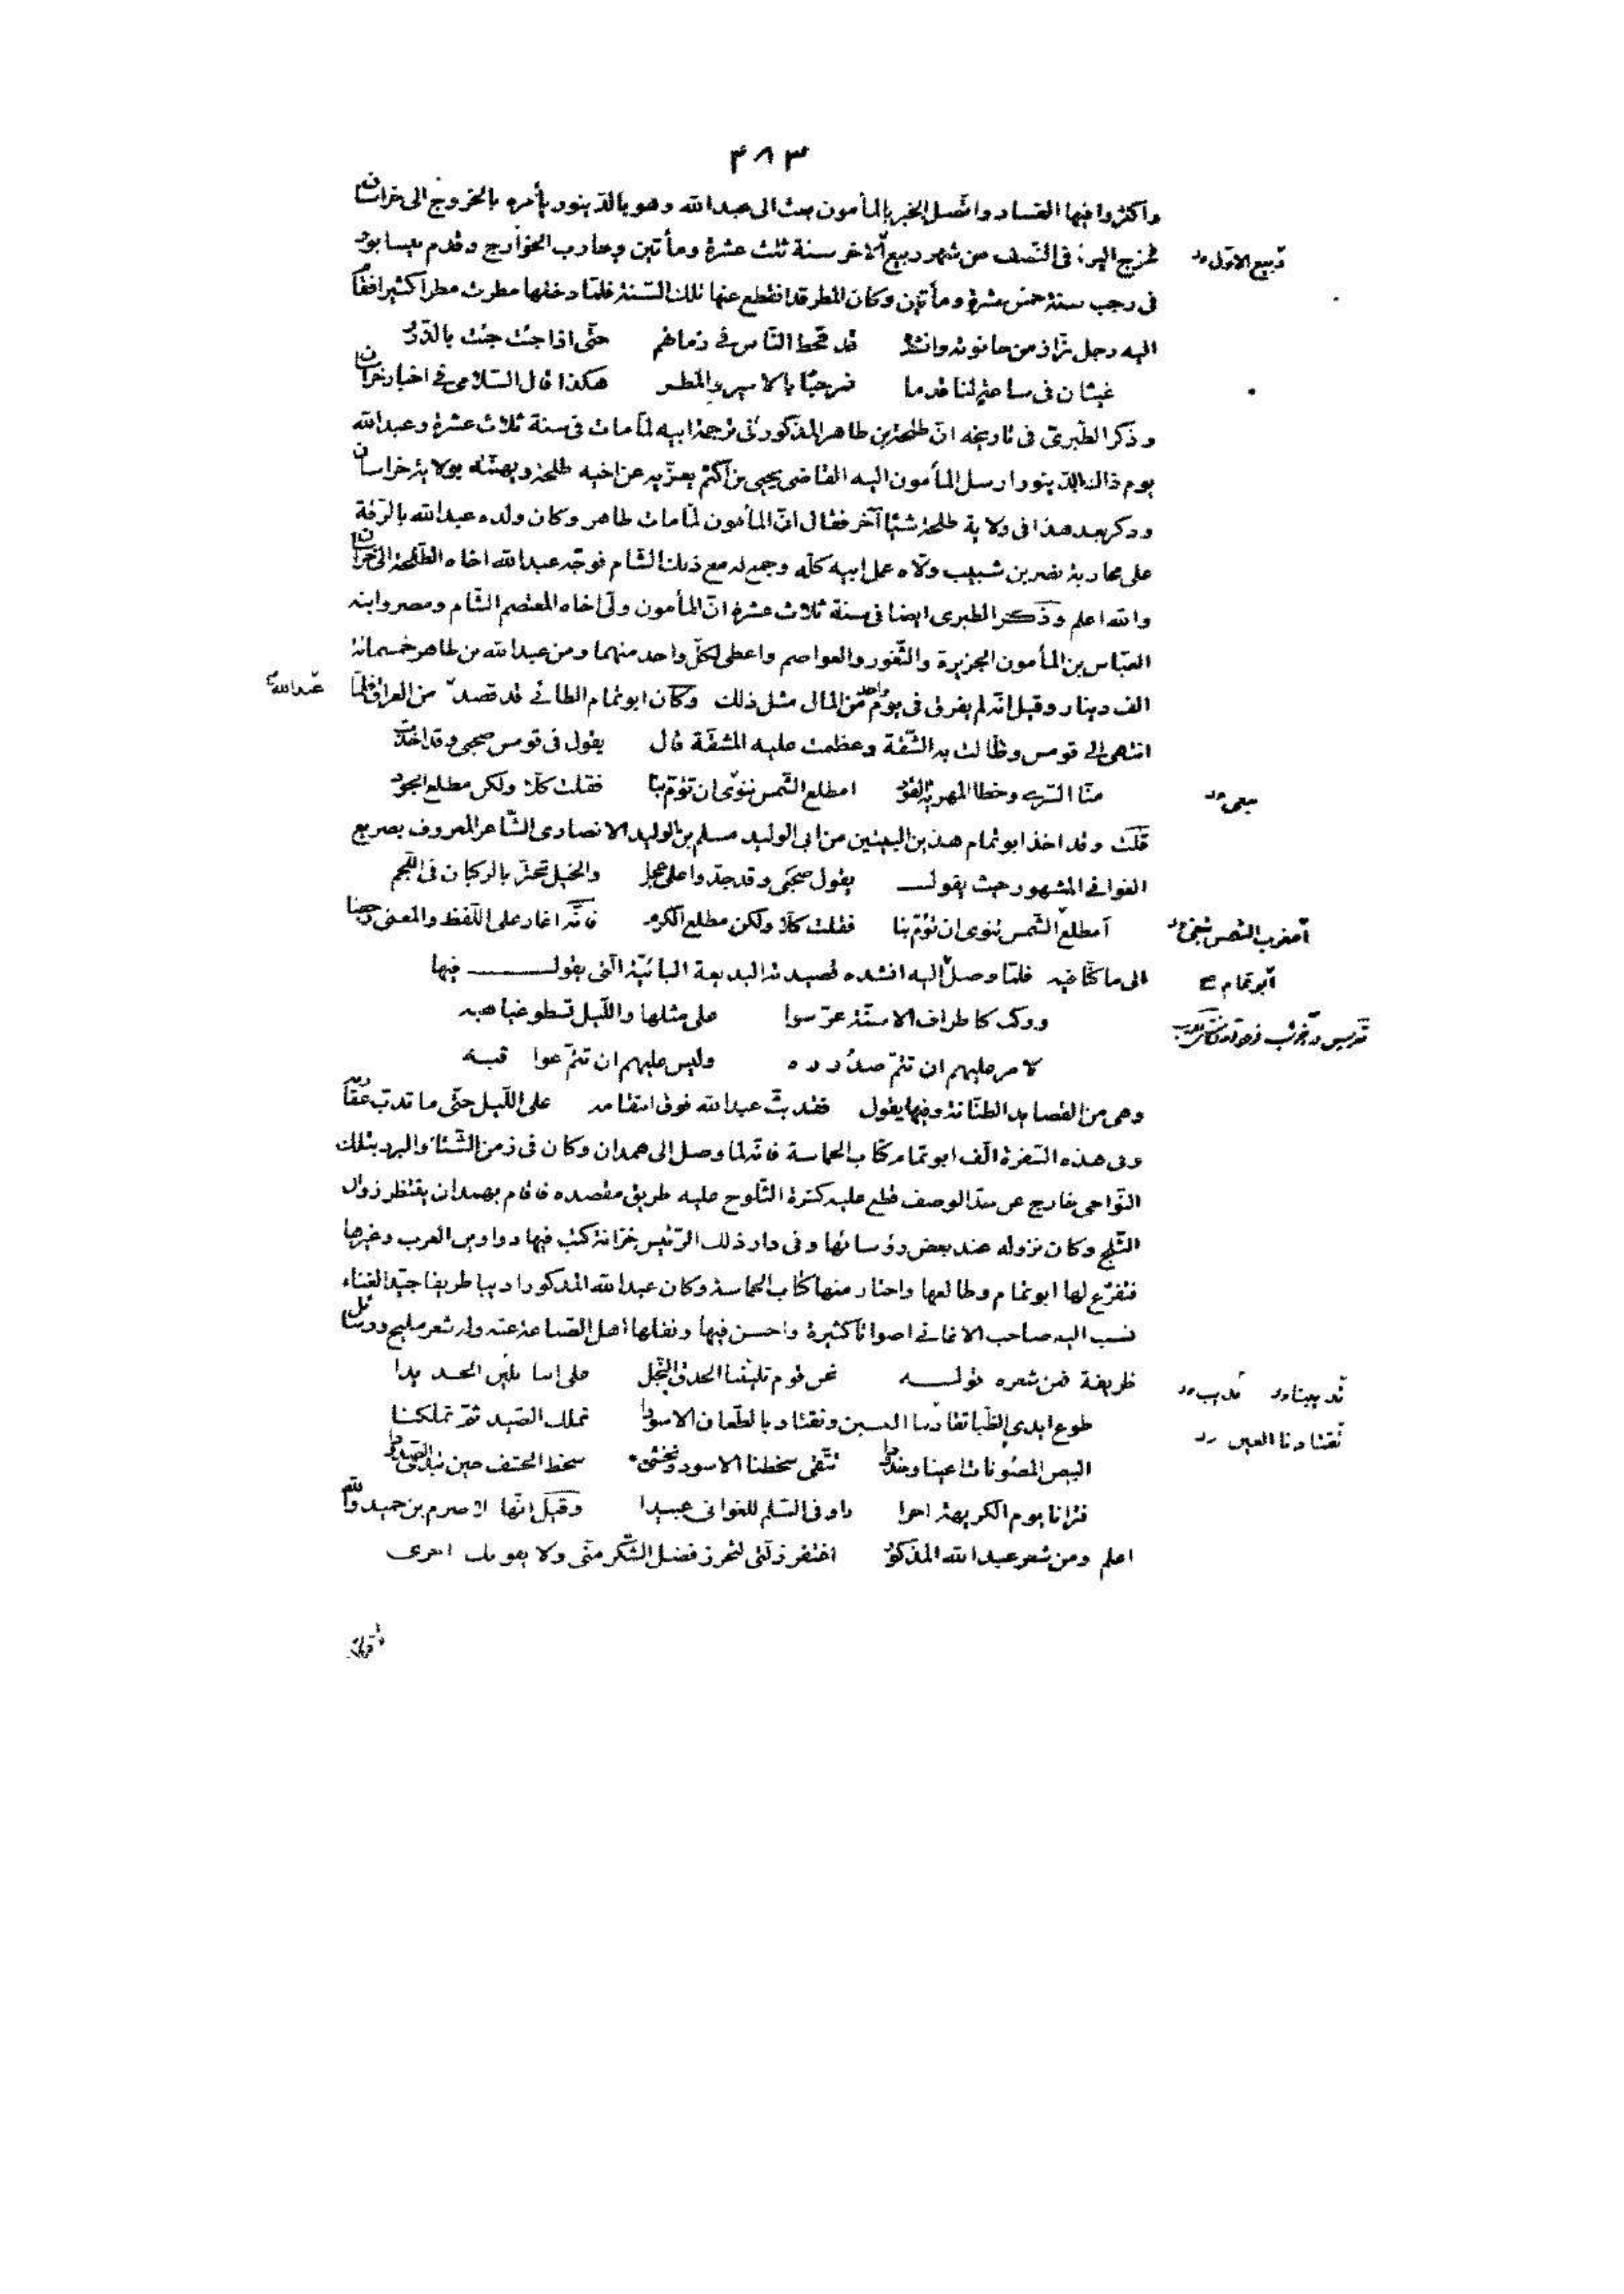 ٣٨٣
واكثروا فيها الفساد واتّصل الخبر بالمأمون بعث الى عبد الله وهو بالدّينور يأمره بالخروج الى خراسان
فخرج اليها فى النّصف من شهر ربيع الآخر سنة ثلث عشرة ومأتين وحارب الخوارج وقدم نيسابور
ربيع الاوّل
فى رجب سنة خمس عشرة ومأتين وكان المطر قد انقطع عنها تلك السّنة فلمّا دخلها مطرت مطرا كثيرا فقام
اليه رجل بزّاز من حانوته وانشد قد قحط النّاس فى زمانهم حتّى اذا جئت جئت بالدّرر
غيثان فى ساعة لنا قدما فمرحبًا بالامير والمطر هكذا قال السّلامى فى اخبار خراسان
وذكر الطّبرىّ فى تاريخه انّ طلحة بن طاهر المذكور فى ترجمة ابيه لمّا مات فى سنة ثلاث عشرة وعبد الله
يوم ذاك بالدّينور ارسل المأمون اليه القاضى يحيى بن اكثم يعزّيه عن اخيه طلحة ويهنّئه بولاية خراسان
وذكر بعد هذا فى ولاية طلحة شيئًا آخر فقال انّ المأمون لمّا مات طاهر وكان ولده عبد الله بالرّقة
على محاربة نصر بن شبيب ولّاه عمل ابيه كلّه وجمع له مع ذلك الشّام فوجّه عبد الله اخاه الطّلحة الى خراسان
والله اعلم وذكر الطبرى ايضا فى سنة ثلاث عشرة انّ المأمون ولّى اخاه المعتصم الشّام ومصر وابنه
العبّاس بن المأمون الجزيرة والثّغور والعواصم واعطى لكلّ واحد منهما ومن عبد الله بن طاهر خمسمائة
الف دينار وقيل انّه لم يفرق فى يوم واحد من المال مثل ذلك وكان ابو تمّام الطائى قد قصده من العراق فلمّا
عبد الله
انتهى الى قومس وطالت به الشّقة وعظمت عليه المشقّة قال يقول فى قومس صحبى وقد اخذت
منّا السّرى وخطا المهريّة القود امطلع الشّمس تنوى ان تؤمّ بنا فقلت كلّا ولكن مطلع الجود
قلت وقد اخذ ابو تمّام هذين البيتين من ابى الوليد مسلم بن الوليد الانصارى الشّاعر المعروف بصريع
الغوانى المشهور حيث يقول يقول صحبى وقد جدّوا على عجل والخيل تحتزّ بالركبان فى اللّجم
أمطلع الشّمس تنوى ان تؤمّ بنا فقلت كلّا ولكن مطلع الكرم فانّه اغار على اللّفظ والمعنى رجعنا
أمغرب الشمس تبغى
الى ما كنّا فيه فلمّا وصل اليه انشده قصيدته البديعة البائيّة الّتى يقول فيها
ابو تمام
وركب كاطراف الاسنّة عرّسوا على مثلها واللّيل تسطو غياهبه
لامر عليهم ان تتمّ صدوره وليس عليهم ان تتمّ عواقبه
وهى من القصايد الطنّانة وفيها يقول فقد بثّ عبد الله خوف انتقامه على اللّيل حتّى ما تدبّ عقاربه
وفى هذه السّفرة الّف ابو تمام كتاب الحماسة فانّه لمّا وصل الى همدان وكان فى زمن الشّتاء والبرد بتلك
النّواحى خارج عن حدّ الوصف قطع عليه كثرة الثّلوج عليه طريق مقصده فاقام بهمدان ينتظر زوال
الثّلج وكان نزوله عند بعض رؤسائها وفى دار ذلك الرّئيس خزانة كتب فيها دواوين العرب وغيرها
فتفرّغ لها ابو تمّام وطالعها واختار منها كتاب الحماسة وكان عبد الله المذكور اديبا ظريفا جيّد الغناء
نسب اليه صاحب الاغانى اصواتًا كثيرة واحسن فيها ونقلها اهل الصّناعة عنه وله شعر مليح ورسائل
ظريفة فمن شعره قوله نحن قوم تليننا الحدق النّجل على انّنا نلين الحديدا
طوع ايدى الظّبا تقادنا العين ونقتاد بالطّعان الاسودا نملك الصّيد ثمّ تملكنا
تقتادنا العين
البيض المصونات اعينا وخدودا تتّقى سخطنا الاسود ونخشى سخط الخشف حين تبدى الصّدودا
فترانا يوم الكريهة احرارا وفى السّلم للغوانى عبيدا وقيل انّها لاصرم بن حميد والله
اعلم ومن شعر عبد الله المذكور اغتفر زلّتى لتحرز فضل الشّكر منّى ولا يفوتك اجرى